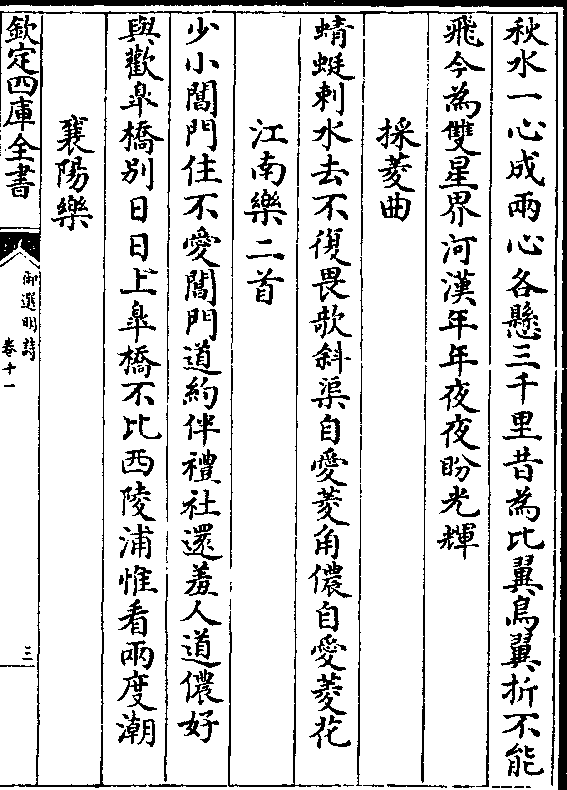 秋水一心成兩心各懸三千里昔為比翼鳥翼折不能
飛今為雙星界河漢年年夜夜盼光輝
採菱曲
蜻蜓刺水去不復畏欹斜渠自愛菱角儂自愛菱花
江南樂二首
少小閶門住不愛閶門道約伴禮社還羞人道儂好
與歡臯橋別日日上臯橋不比西陵浦惟看兩度潮
襄陽樂
欽定四庫全書
御選明詩
卷十一
三